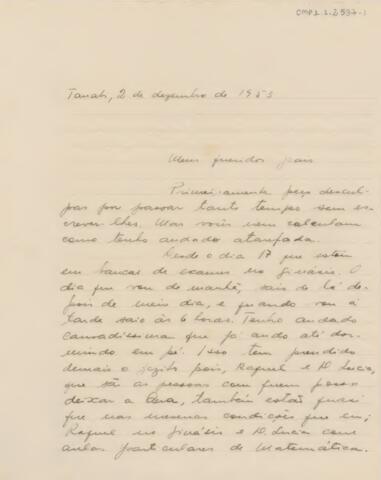 CMP1.1.2537-1
Tanabi, 2 de dezembro de 1953
Meus queridos pais
Primeiramente peço descul-
pas por passar tanto tempo sem es-
crever-lhes. Mas vocês nem calculam
como tenho andado atarefada.
Desde o dia 17 que estou
em bancas de exames no ginásio. O
dia que vou de manhã, saio de lá de-
pois de meio dia, e quando vou à
tarde saio às 6 horas. Tenho andado
cansadíssima que já ando até dor-
mindo em pé. Isso tem prendido
demais o pois, Raquel e D. Lucia,
que são as pessoas com quem posso
deixar a também estão quasi
que nas mesmas condições que eu;
Raquel no ginásio e D. Lucia com
aulas particulares de Matemática.